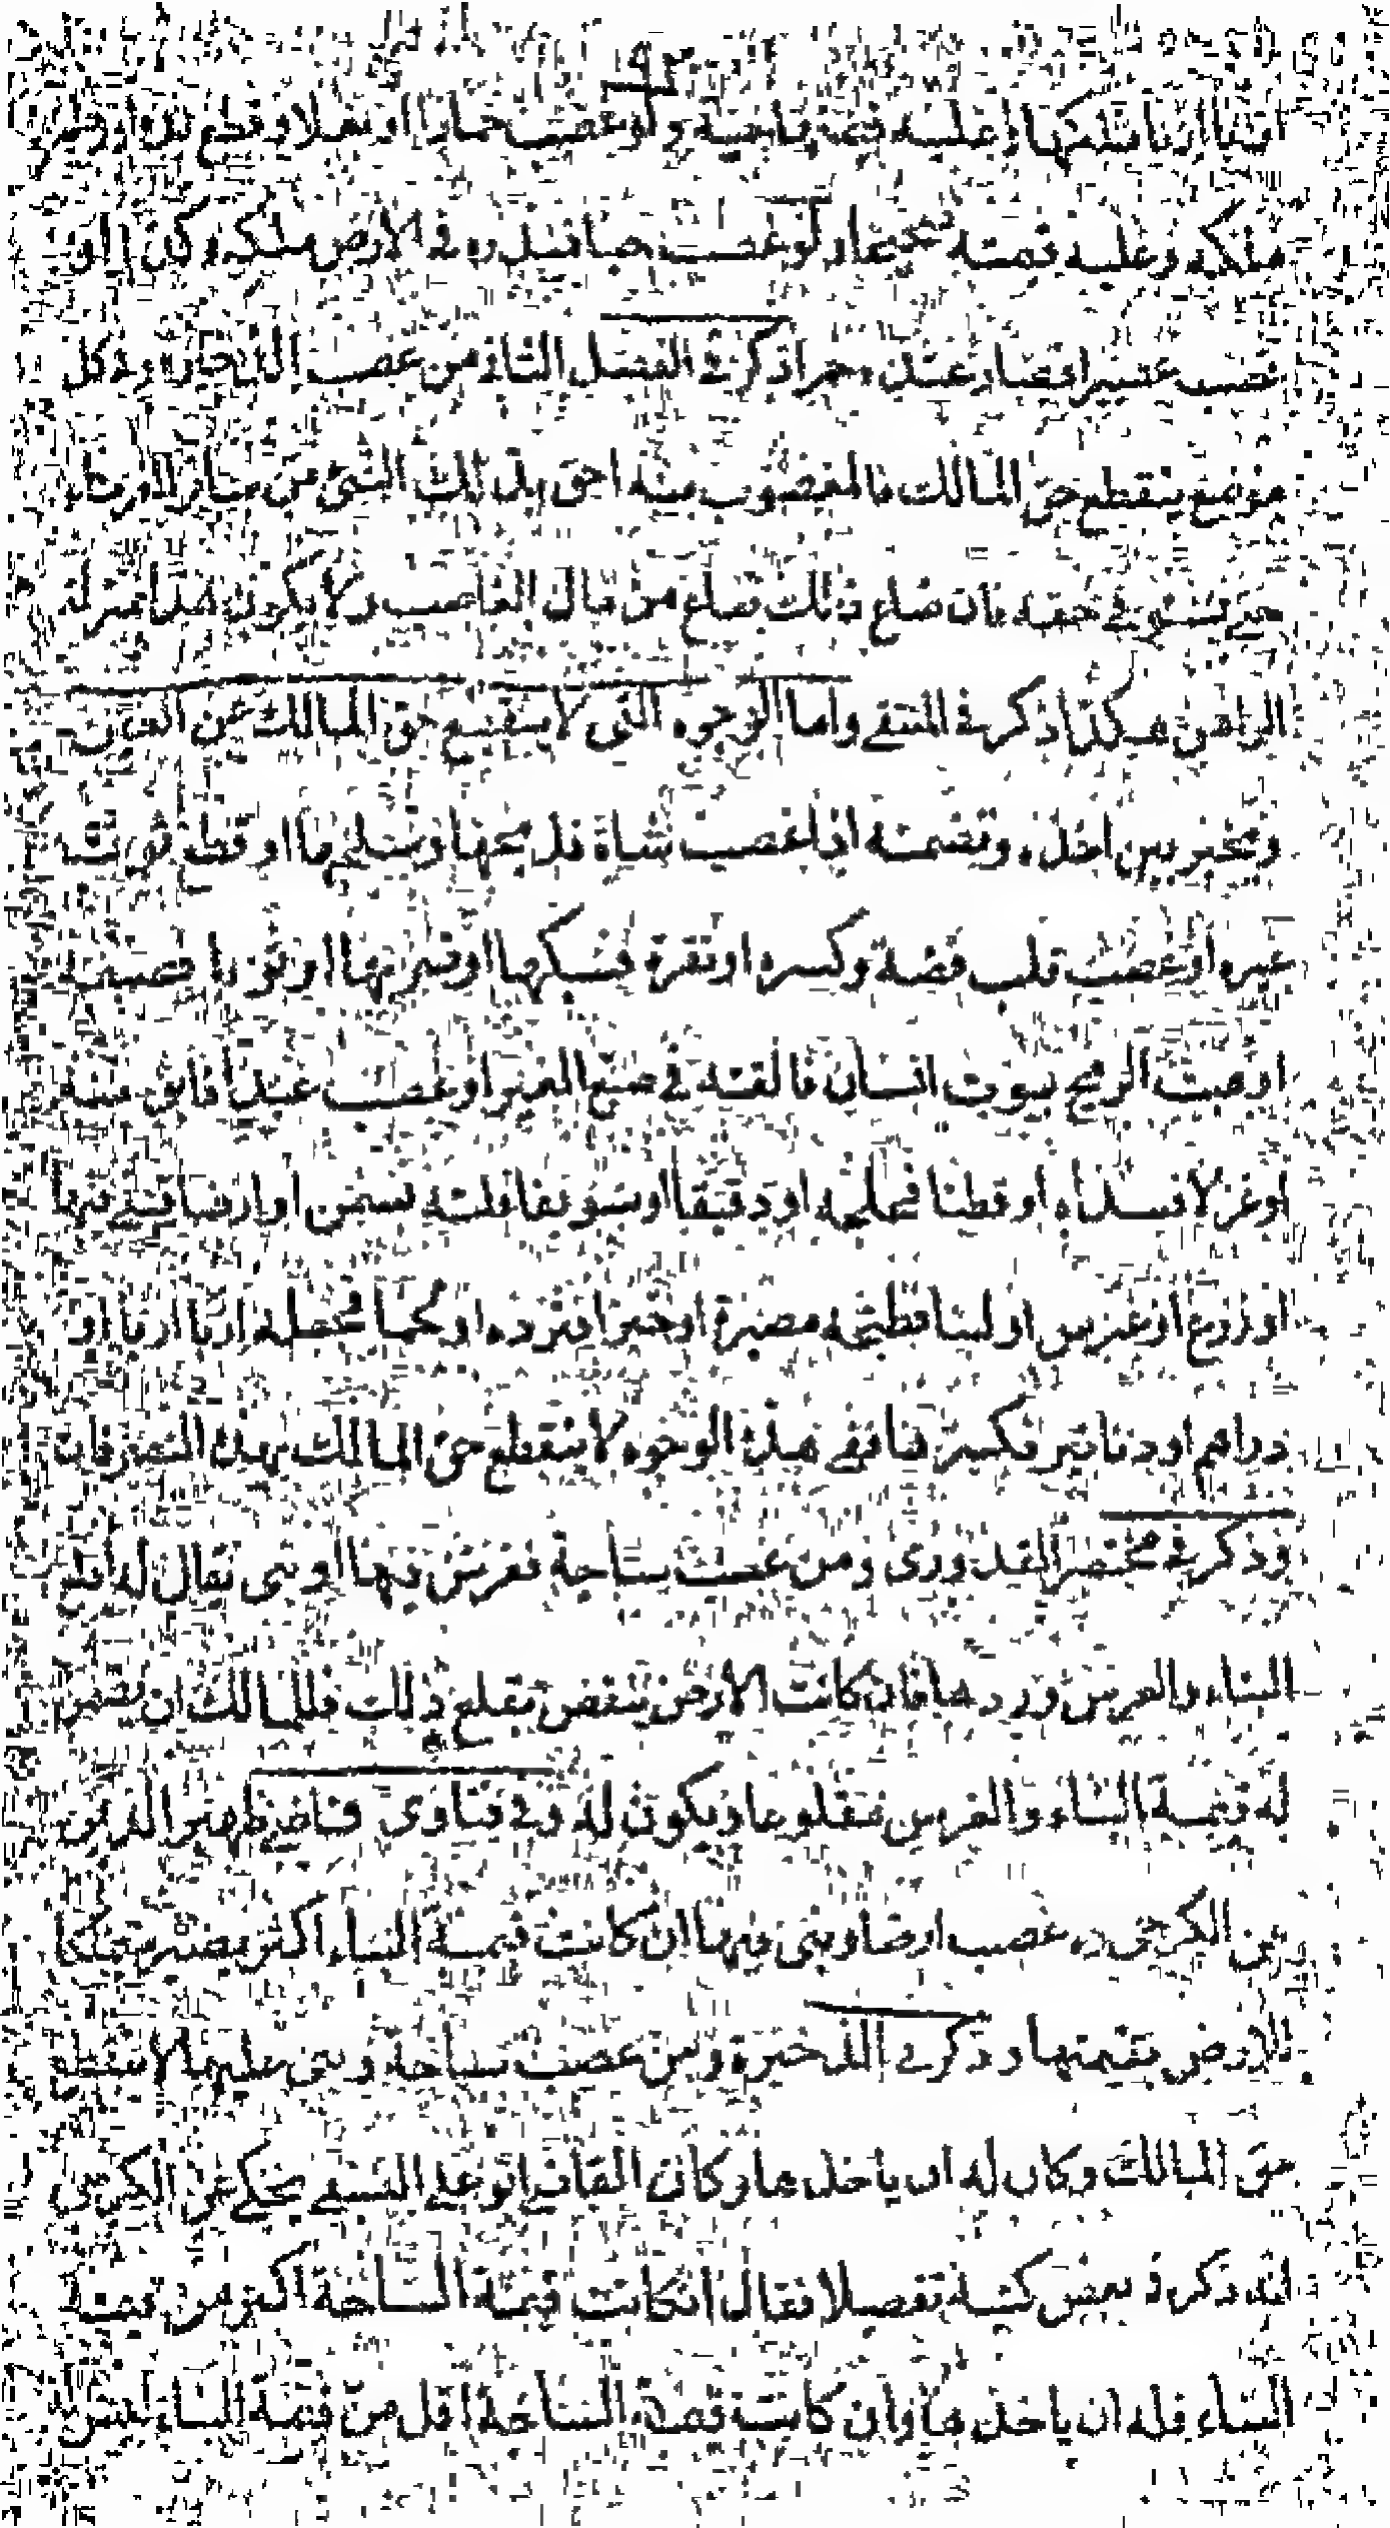 ملكه وعليه قيمته صحيحا ولو غصب حبا فبذره في الارض ملكه وكذا لو
غصب عصيرا فصار عنده خمرا ذكر في الفصل الثاني من غصب الذخيرة وفي كل
موضع ينقطع حق المالك فالمغصوب منه احق بذلك الشيء من سائر الغرماء
حتى يستوفي حقه فان ضاع ذلك ضاع من مال الغاصب ولا يكون هذا بمنزلة
الرهن هكذا ذكر في المنتقى واما الوجوه التي لا ينقطع حق المالك عن العين
ويخير بين اخذه وتضمينه اذا غصب شاة فذبحها وسلخها او قطع ثوب
غيره او غصب قلب فضة وكسره او نقرة فسبكها او ثوبا فصبغه
او هبت الريح بثوب انسان فالقته في صبغ الغير او غصب عبدا فابق منه
او غزلا فسداه او قطنا فحلجه او دقيقا او سويقا فلته بسمن او ارضا فبنى فيها
او زرع او غرس او لبنا فطبخه مضيرة او خبزا فثرده او لحما فجعله اربا اربا او
دراهم او دنانير فكسرها ففي هذه الوجوه لا ينقطع حق المالك بهذه التصرفات
وذكر في مختصر القدوري ومن غصب ساحة فغرس فيها او بنى يقال له اقلع
البناء والغرس وردها فان كانت الارض تنقص بقلع ذلك فللمالك ان يضمن
له قيمة البناء والغرس مقلوعا ويكون له وفي فتاوى قاضي ظهير الدين
عن الكرخي ره غصب ارضا وبنى فيها ان كانت قيمة البناء اكثر يصير متملكا
للارض بقيمتها وذكر في الذخيرة ومن غصب ساحة وبنى عليها لا ينقطع
حق المالك وكان له ان ياخذها وكان القاضي ابو علي النسفي يحكي عن الكرخي
انه ذكر في بعض كتبه تفصيلا فقال ان كانت قيمة الساحة اكثر من قيمة
البناء فله ان ياخذها وان كانت قيمة الساحة اقل من قيمة البناء ليس